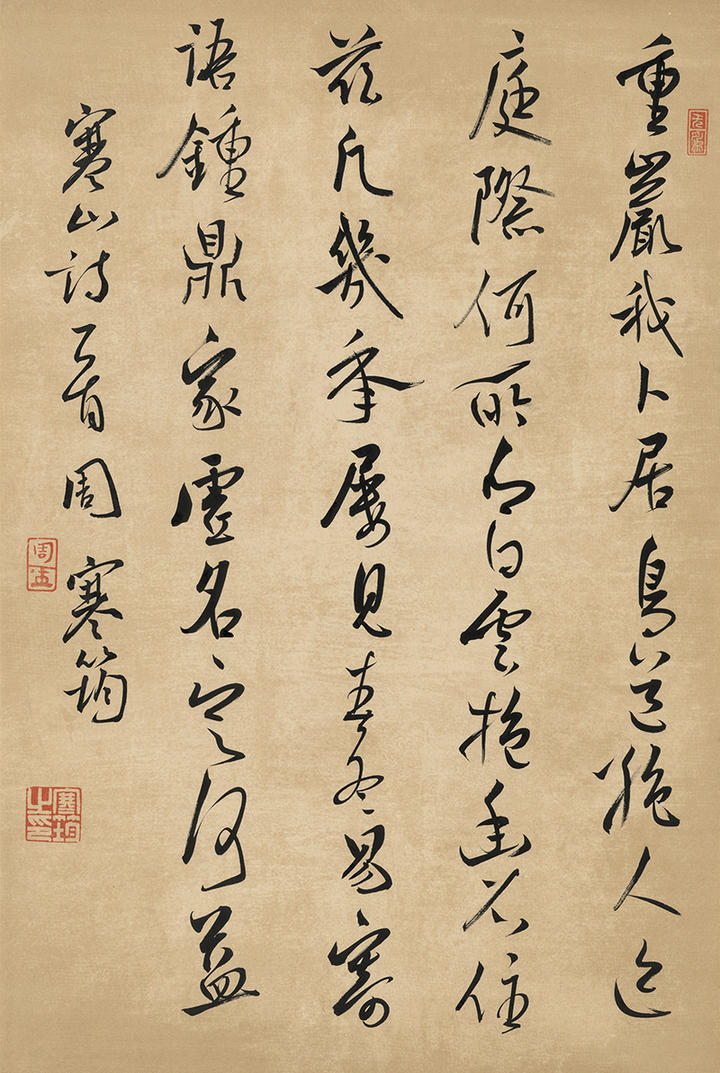 重巖我卜居鳥道絕人迹
庭際何所有白雲抱幽石住
茲凡幾年屢見春冬易寄
語鍾鼎家虛名定何益
寒山詩乙首 周寒筠
寒筠之印